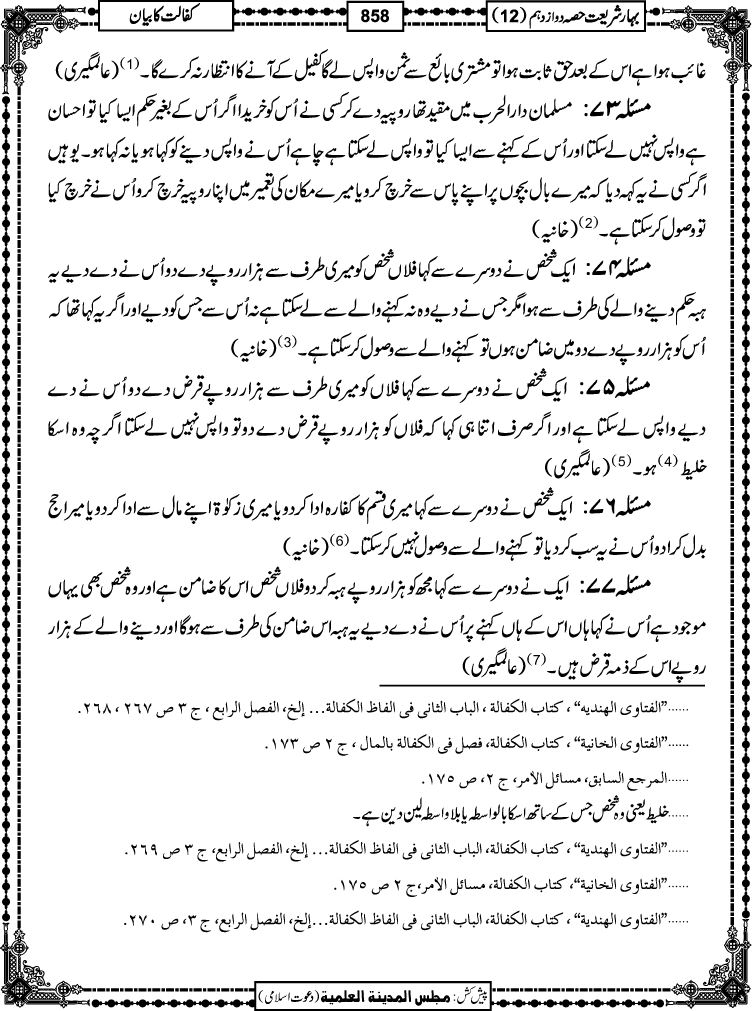 بہار شریعت حصہ دوازدہم (12)
858
کفالت کا بیان
غائب ہوا ہے اس کے بعد حق ثابت ہوا تو مشتری بائع سے ثمن واپس لے گا کفیل کے آنے کا انتظار نہ کرے گا۔(1)(عالمگیری)
مسئلہ ۷۳: مسلمان دارالحرب میں مقید تھا روپیہ دے کر کسی نے اُس کو خریدا اگر اُس کے بغیر حکم ایسا کیا تو احسان
ہے واپس نہیں لے سکتا اور اُس کے کہنے سے ایسا کیا تو واپس لے سکتا ہے چاہے اُس نے واپس دینے کو کہا ہو یا نہ کہا ہو۔ یوہیں
اگر کسی نے یہ کہہ دیا کہ میرے بال بچوں پر اپنے پاس سے خرچ کرو یا میرے مکان کی تعمیر میں اپنا روپیہ خرچ کرو اُس نے خرچ کیا
تو وصول کر سکتا ہے۔(2)(خانیہ)
مسئلہ ۷۴: ایک شخص نے دوسرے سے کہا فلاں شخص کو میری طرف سے ہزار روپے دے دو اُس نے دے دیے یہ
ہبہ حکم دینے والے کی طرف سے ہوا مگر جس نے دیے وہ نہ کہنے والے سے لے سکتا ہے نہ اُس سے جس کو دیے اور اگر یہ کہا تھا کہ
اُس کو ہزار روپے دے دو میں ضامن ہوں تو کہنے والے سے وصول کر سکتا ہے۔(3)(خانیہ)
مسئلہ ۷۵: ایک شخص نے دوسرے سے کہا فلاں کو میری طرف سے ہزار روپے قرض دے دو اُس نے دے
دیے واپس لے سکتا ہے اور اگر صرف اتنا ہی کہا کہ فلاں کو ہزار روپے قرض دے دو تو واپس نہیں لے سکتا اگرچہ وہ اسکا
خلیط(4) ہو۔(5)(عالمگیری)
مسئلہ ۷۶: ایک شخص نے دوسرے سے کہا میری قسم کا کفارہ ادا کر دو یا میری زکوٰۃ اپنے مال سے ادا کر دو یا میرا حج
بدل کرا دو اُس نے یہ سب کر دیا تو کہنے والے سے وصول نہیں کر سکتا۔(6)(خانیہ)
مسئلہ ۷۷: ایک نے دوسرے سے کہا مجھ کو ہزار روپے ہبہ کر دو فلاں شخص اس کا ضامن ہے اور وہ شخص بھی یہاں
موجود ہے اُس نے کہا ہاں اس کے ہاں کہنے پر اُس نے دے دیے یہ ہبہ اس ضامن کی طرف سے ہو گا اور دینے والے کے ہزار
روپے اس کے ذمہ قرض ہیں۔(7)(عالمگیری)
......"الفتاوی الھندیه"، کتاب الکفالة، الباب الثانی فی الفاظ الکفالة... إلخ، الفصل الرابع، ج ۳ ص ۲۶۷، ۲۶۸.
......"الفتاوی الخانیة"، کتاب الکفالة، فصل فی الکفالة بالمال، ج ۲ ص ۱۷۳.
......المرجع السابق، مسائل الأمر، ج ۲، ص ۱۷۵.
......خلیط یعنی وہ شخص جس کے ساتھ اسکا بالواسطہ یا بلا واسطہ لین دین ہے۔
......"الفتاوی الھندیة"، کتاب الکفالة، الباب الثانی فی الفاظ الکفالة... إلخ، الفصل الرابع، ج ۳ ص ۲۶۹.
......"الفتاوی الخانیة"، کتاب الکفالة، مسائل الأمر، ج ۲ ص ۱۷۵.
......"الفتاوی الھندیة"، کتاب الکفالة، الباب الثانی فی الفاظ الکفالة...إلخ، الفصل الرابع، ج ۳، ص ۲۷۰.
پیش کش: مجلس المدینة العلمیة (دعوت اسلامی)